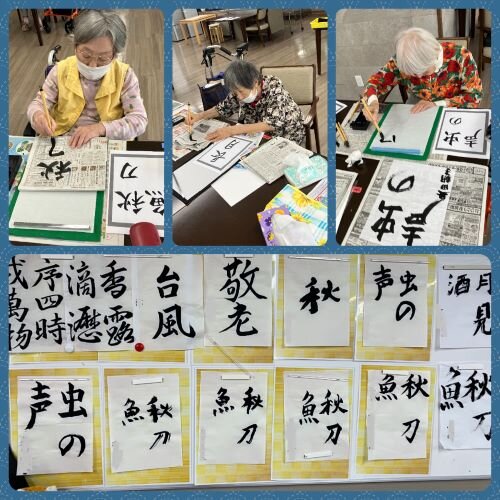 秋
秋刀
魚
虫の
声
虫の
声
香露
滴瀝
序四時
萬物
台風
敬老
秋
虫の
声
月見
酒
虫の
声
秋刀
魚
秋刀
魚
秋刀
魚
秋刀
魚
秋刀
魚